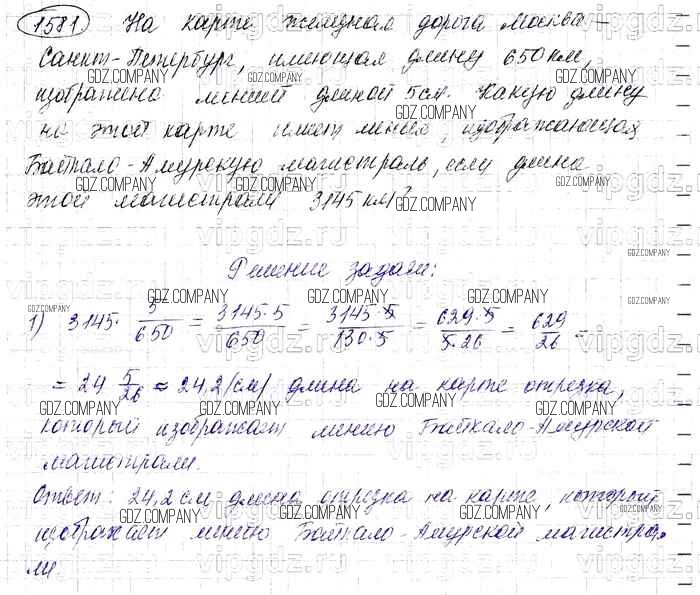 1581 На карте железная дорога Москва –
Санкт-Петербург, имеющая длину 650 км,
изображена линией длиной 5 см. Какую длину
на этой карте имеет линия, изображающая
Байкало-Амурскую магистраль, если длина
этой магистрали 3145 км?
Решение задачи:
1) 3145 · 5/650 = 3145·5/650 = 3145·5/130·5 = 629·5/5·26 = 629/26 =
= 24 5/26 ≈ 24,2 (см) длина на карте отрезка,
который изображает линию Байкало-Амурской
магистрали.
Ответ: 24,2 см длина отрезка на карте, который
изображает линию Байкало-Амурской магистра-
ли.
GDZ.COMPANY
vipgdz.ru